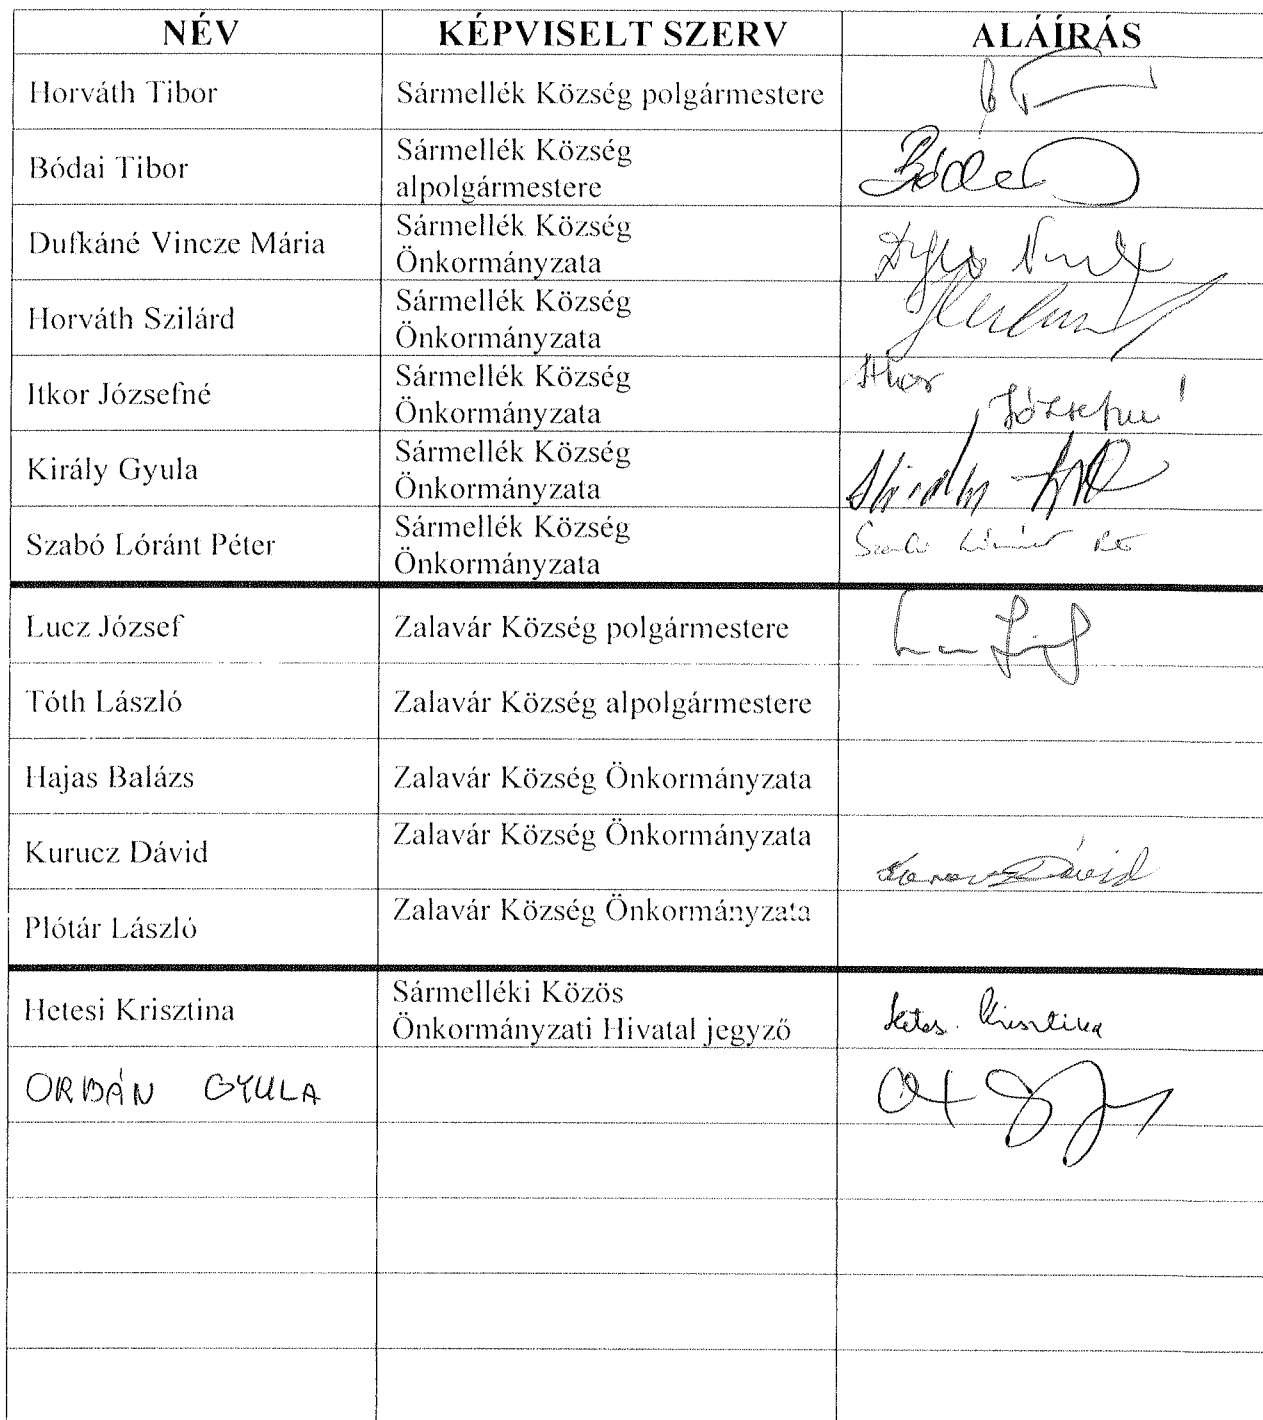 NÉV KÉPVISELT SZERV ALÁÍRÁS
Horváth Tibor Sármellék Község polgármestere
Bódai Tibor Sármellék Község
alpolgármestere
Dufkáné Vincze Mária Sármellék Község
Önkormányzata
Horváth Szilárd Sármellék Község
Önkormányzata
Itkor Józsefné Sármellék Község
Önkormányzata
Király Gyula Sármellék Község
Önkormányzata
Szabó Lóránt Péter Sármellék Község
Önkormányzata
Lucz József Zalavár Község polgármestere
Tóth László Zalavár Község alpolgármestere
Hajas Balázs Zalavár Község Önkormányzata
Kurucz Dávid Zalavár Község Önkormányzata
Dávid
Plótár László Zalavár Község Önkormányzata
Hetesi Krisztina Sármelléki Közös
Önkormányzati Hivatal jegyző
Krisztina
ORBÁN GYULA